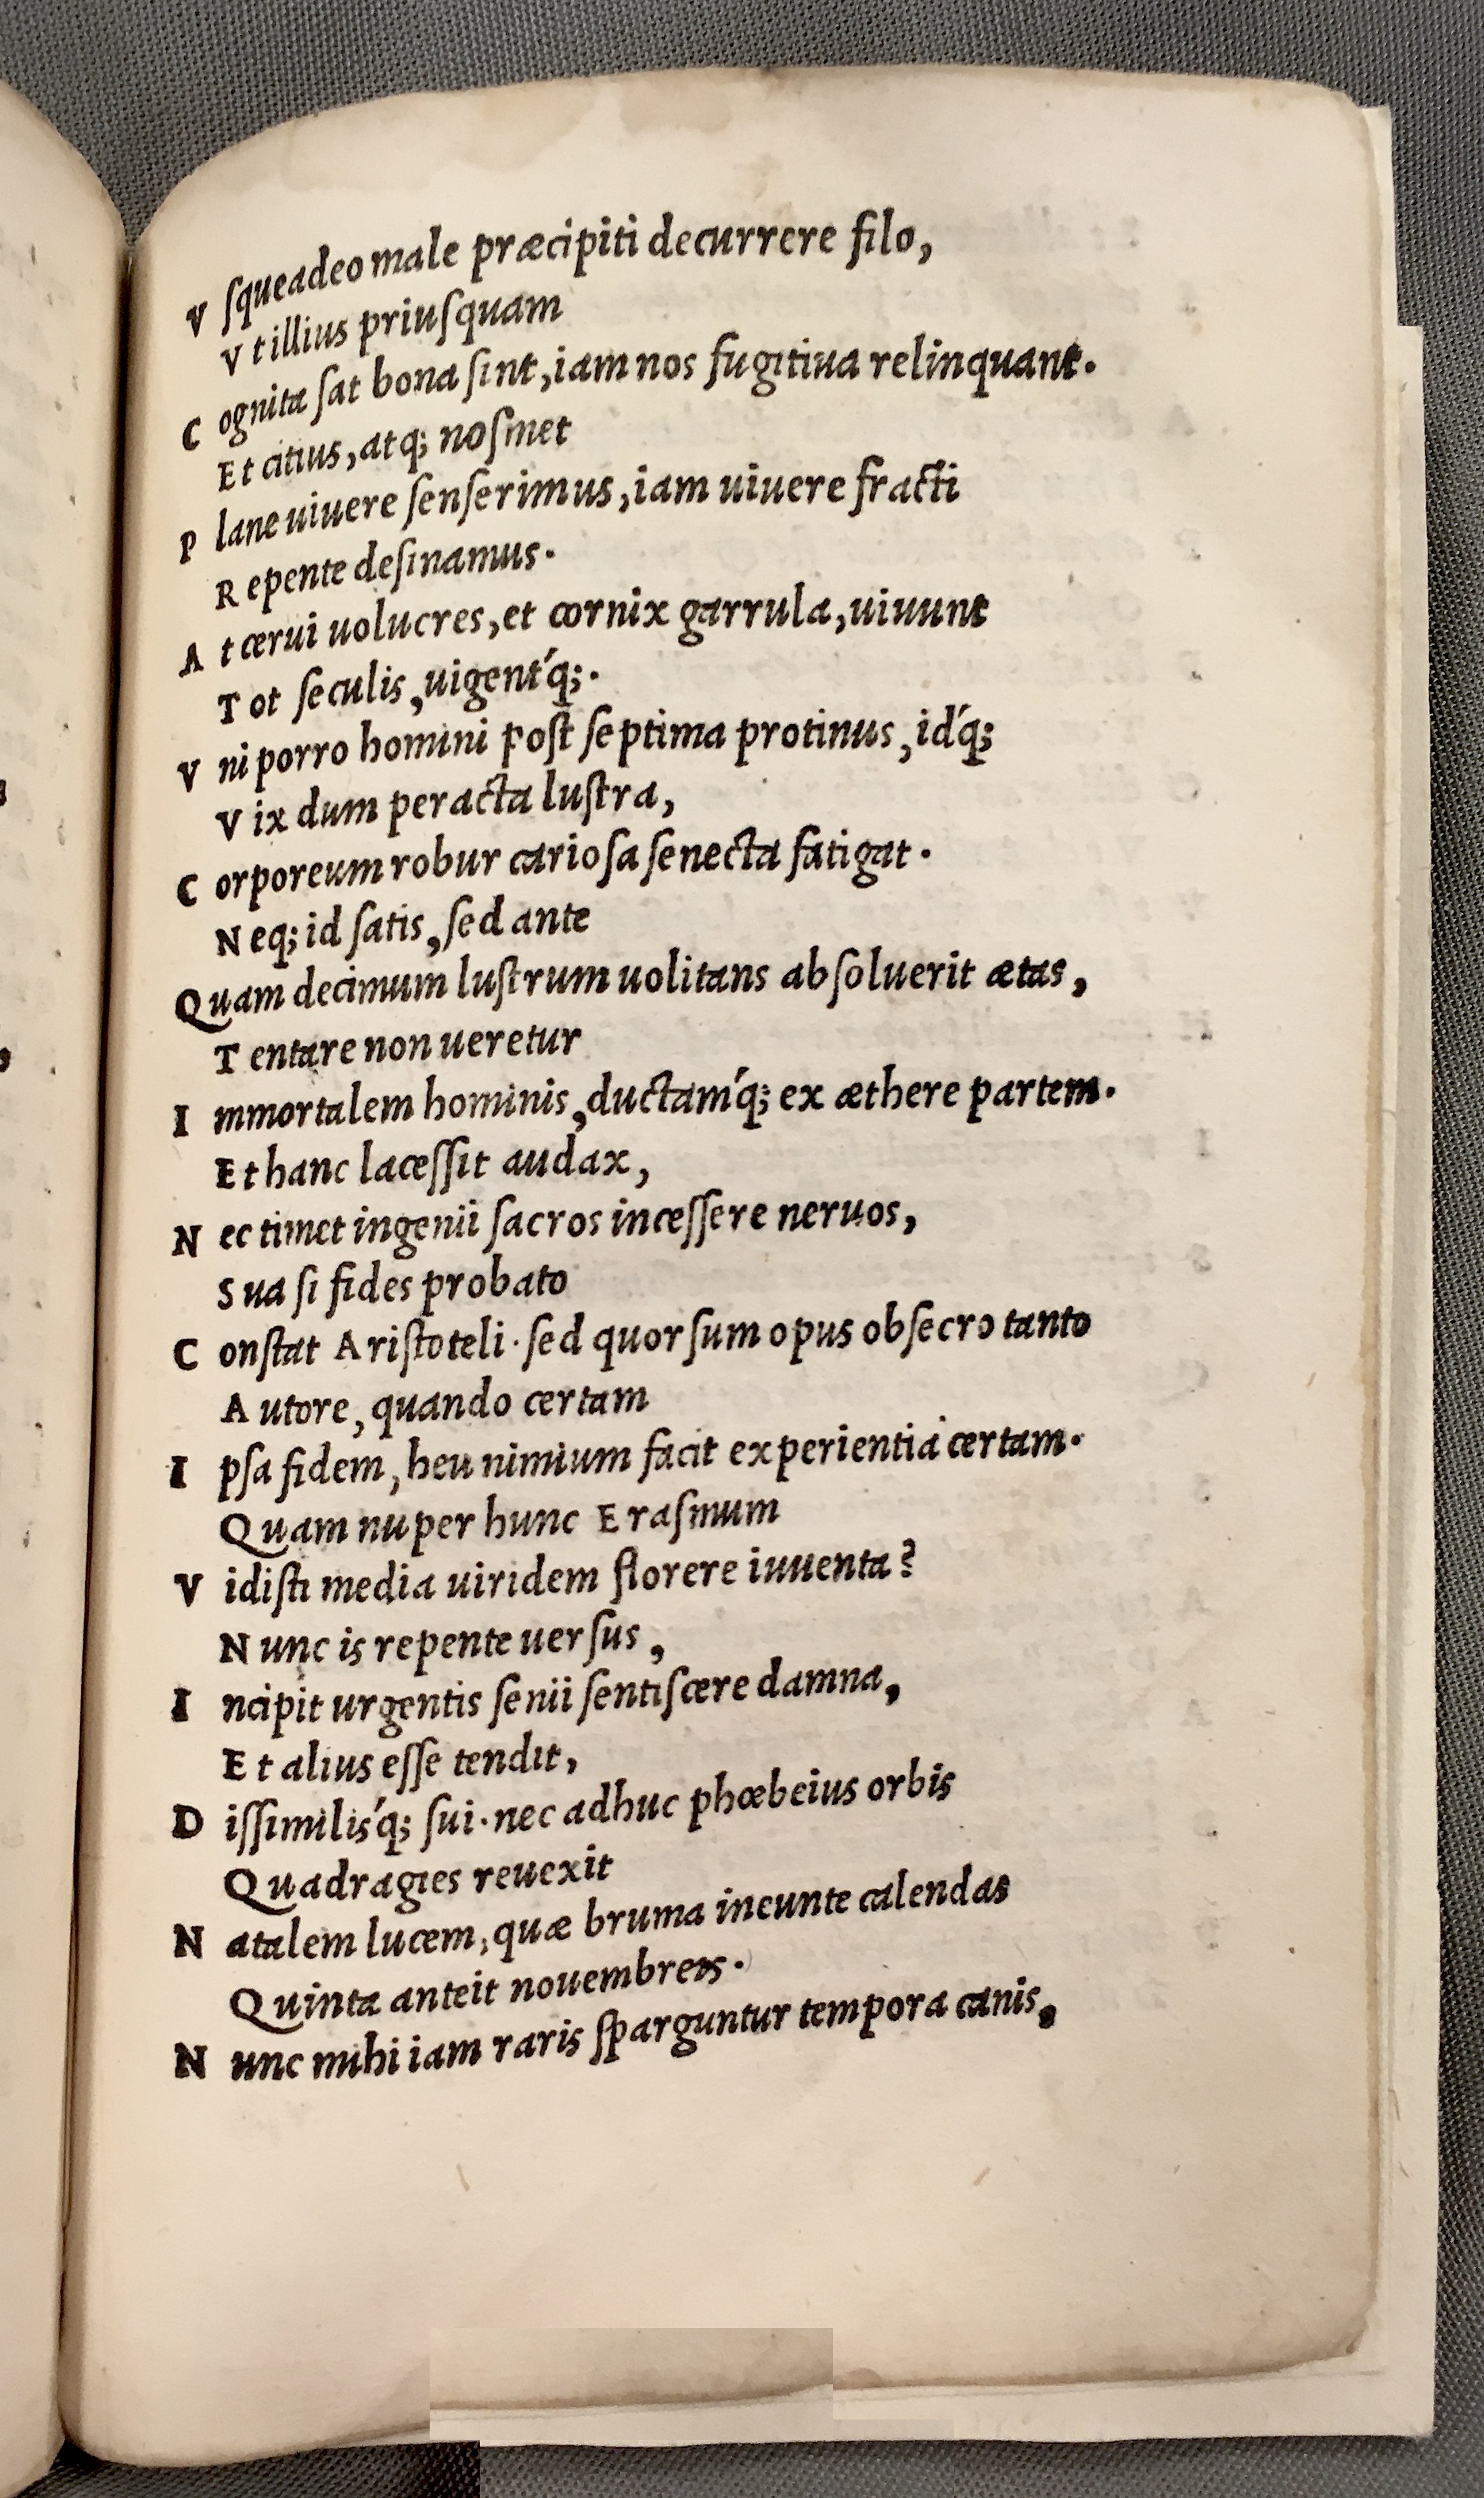 V ſqueadeo male præcipiti decurrere filo,
V t illius priuſquam
C ognita ſat bona ſint, iam nos fugitiua relinquant.
E t citius, atq; noſmet
P lane uiuere ſenſerimus, iam uiuere fracti
R epente deſinamus.
A t cerui uolucres, et cornix garrula, uiuunt
T ot ſeculis, uigent´q;.
V ni porro homini poſt ſeptima protinus, id´q;
V ix dum peracta luſtra,
C orporeum robur carioſa ſenecta fatigat.
N eq; id ſatis, ſed ante
Q uam decimum luſtrum uolitans abſoluerit ætas,
T entare non ueretur
I mmortalem hominis, ductam´q; ex æthere partem.
E t hanc laceſſit audax,
N ec timet ingenii ſacros inceſſere neruos,
S ua ſi fides probato
C onſtat A riſtoteli. ſed quorſum opus obſecro tanto
A utore, quando certam
I pſa fidem, heu nimium facit experientia certam.
Q uam nuper hunc E raſmum
V idiſti media uiridem florere iuuenta?
N unc is repente uerſus,
I ncipit urgentis ſenii ſentiſcere damna,
E t alius eſſe tendit,
D iſſimilis´q; ſui. nec adhuc phœbeius orbis
Q uadragies reuexit
N atalem lucem, quæ bruma ineunte calendas
Q uinta anteit nouembreis.
N unc mihi iam raris ſparguntur tempora canis,